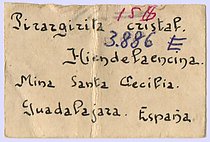 1516
Pirargirita cristal.
3.886 E
Hiendelaencina.
Mina Santa Cecilia.
Guadalajara. España.